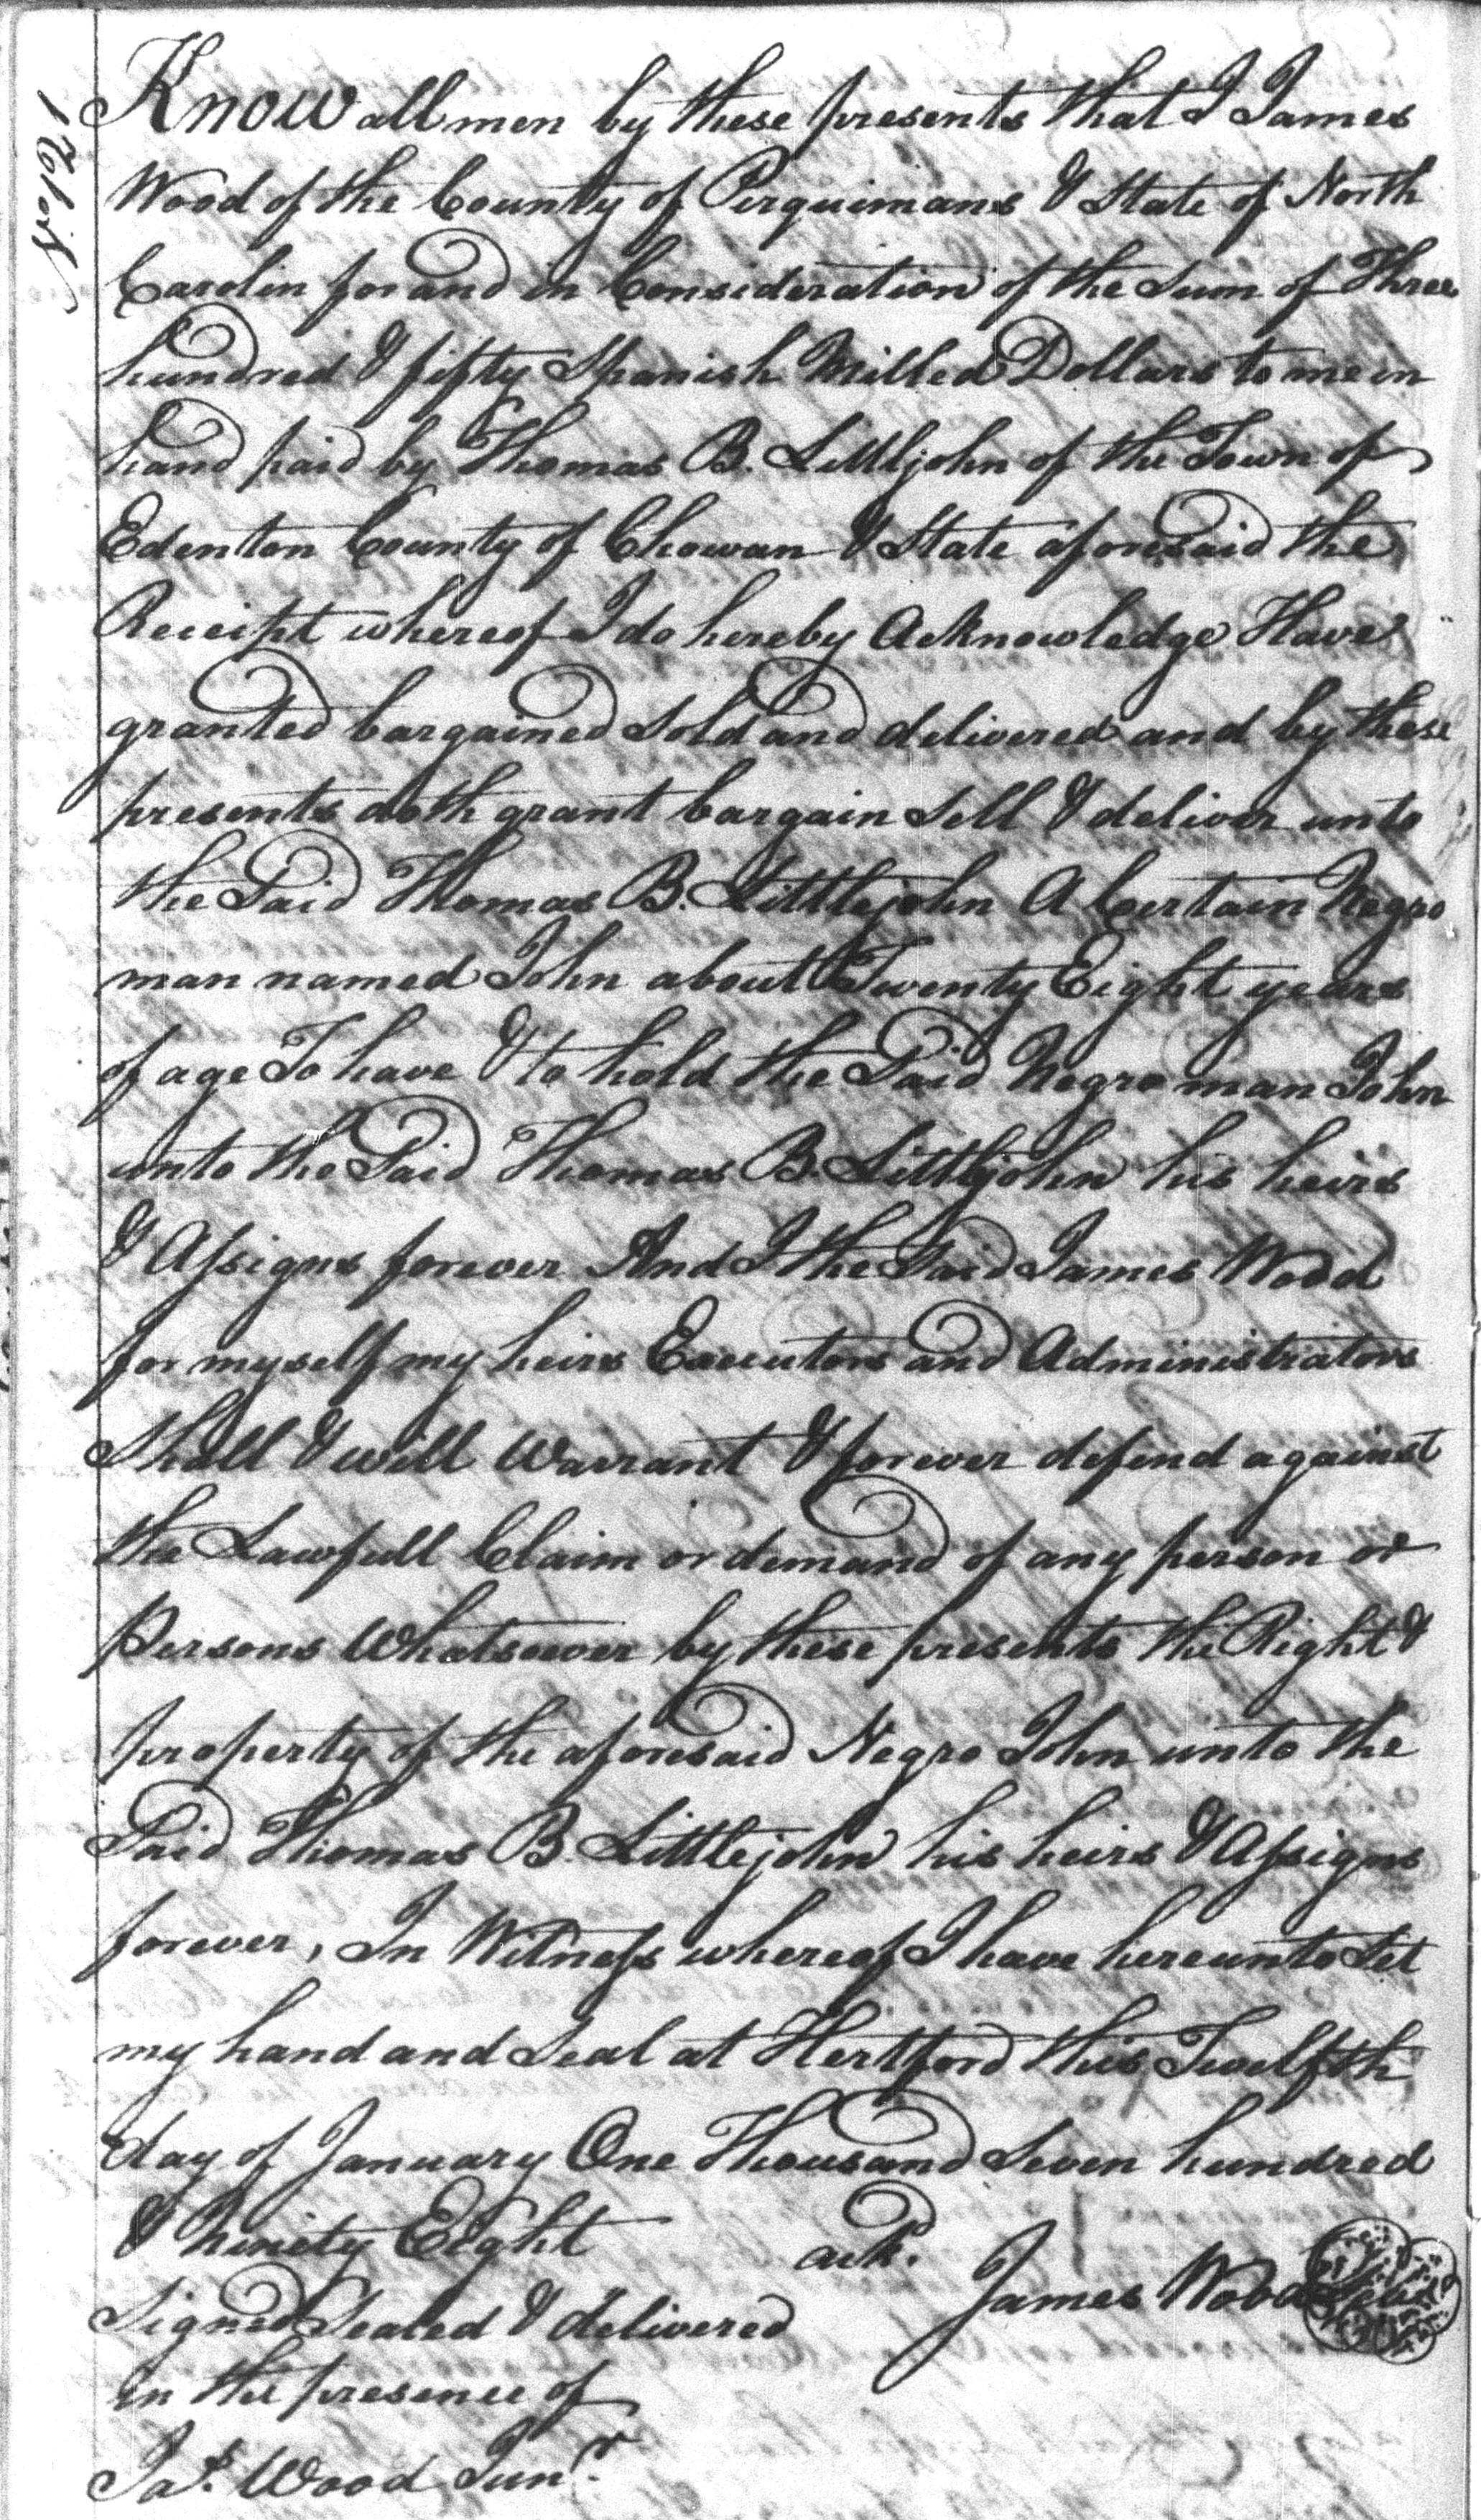 No. 191
Know all men by these presents that I James
Wood of the County of Perquimans & State of North
Carolin for and in Consideration of the Sum of Three
hundred & fifty Spanish Milled Dollars to me in
hand paid by Thomas B. Littljohn of the Town of
Edenton County of Chowan & State aforesaid the
Receipt whereof I do hereby Acknowledge Have
granted bargained Sold and delivered and by these
presents doth grant bargain Sell & deliver unto
the Said Thomas B. Littlejohn A Certain Negro
man named John about Twenty Eight years
of age To have & to hold the Said Negro man John
unto the Said Thomas B. Littlejohn his heirs
& Assigns forever And I the Said James Wood
for myself my heirs Executors and Administrators
Shall & will Warrant & forever defend against
the Lawfull Claim or demand of any person or
Persons Whatsoever by these presents the Right &
property of the aforesaid Negro John unto the
Said Thomas B. Littlejohn his heirs & Assigns
forever, In Witness whereof I have hereunto Set
my hand and Seal at Hertford this Twelfth
day of January One Thousand Seven hundred
& Ninety Eight ack.
James Wood Seal
Signed Sealed & delivered
In the presence of
Jas. Wood Junr.